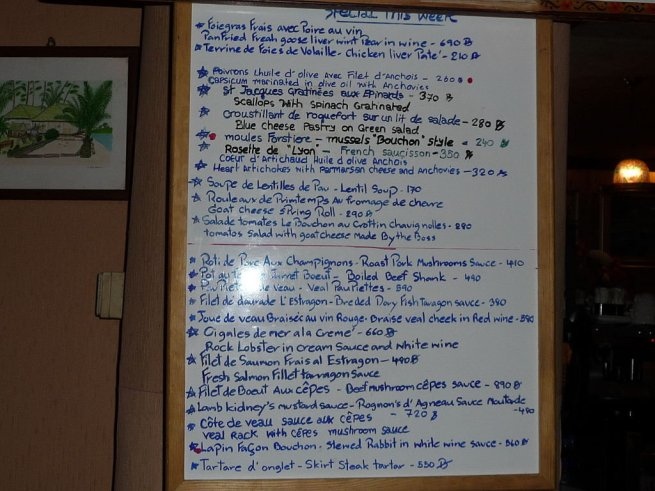 SPECIAL THIS WEEK
Foiegras Frais avec Poire au vin
PanFried Fresh goose liver wint Pear in wine - 690 B
Terrine de Foies de Volaille - Chicken liver Pate' - 210 B
Poivrons L'huile d'olive avec Filet d'Anchois - 260 B
Capsicum marinated in olive oil with Anchovies
St Jacques Gratinées aux Epinards - 370 B
Scallops with Spinach Gratinated
Croustillant de roquefort sur un lit de salade - 280 B
Blue cheese Pastry on Green salad
moules Forstiere - mussels "Bouchon" style = 240 B
Rosette de "Lyon" - French saucisson - 350 B
Coeur d'Artichaud Huile d'olive Anchois
Heart Artichokes with Parmarsan cheese and Anchovies - 320 B
Soupe de Lentilles de Pau - Lentil Soup - 170
Rouleaux de Printemps Au fromage de chevre
Goat Cheese Spring Roll - 290 B
Salade tomates Le Bouchon au Crottin Chavignolles - 290
tomatos Salad with goat cheese Made By the Boss
Roti de Porc Aux Champignons - Roast Pork Mushrooms Sauce - 410
Pot au Boeuf - Boiled Beef Shank - 490
de Veau - Veal Paupiettes - 590
Filet de daurade L'Estragon - Breded Dory Fish taragon sauce - 390
Joue de veau Braisée au vin Rouge - Braise veal cheek in Red wine - 580
Cigales de mer a la Creme' - 660 B
Rock Lobster in Cream Sauce and White wine
Filet de Saumon Frais al Estragon - 490 B
Fresh Salmon Fillet tarragon Sauce
Filet de Boeuf Aux cêpes - Beef mushroom cêpes sauce - 890 B
Lamb kidney's mustard sauce - Rognon's d'Agneau Sauce Moutarde
-490
Côte de veau sauce aux cêpes - 720 B
veal Rack with cêpes mushroom sauce
Lapin Façon Bouchon - Stewed Rabbit in white wine sauce - 560 B
Tartare d'onglet - Skirt Steak tartar - 550 B